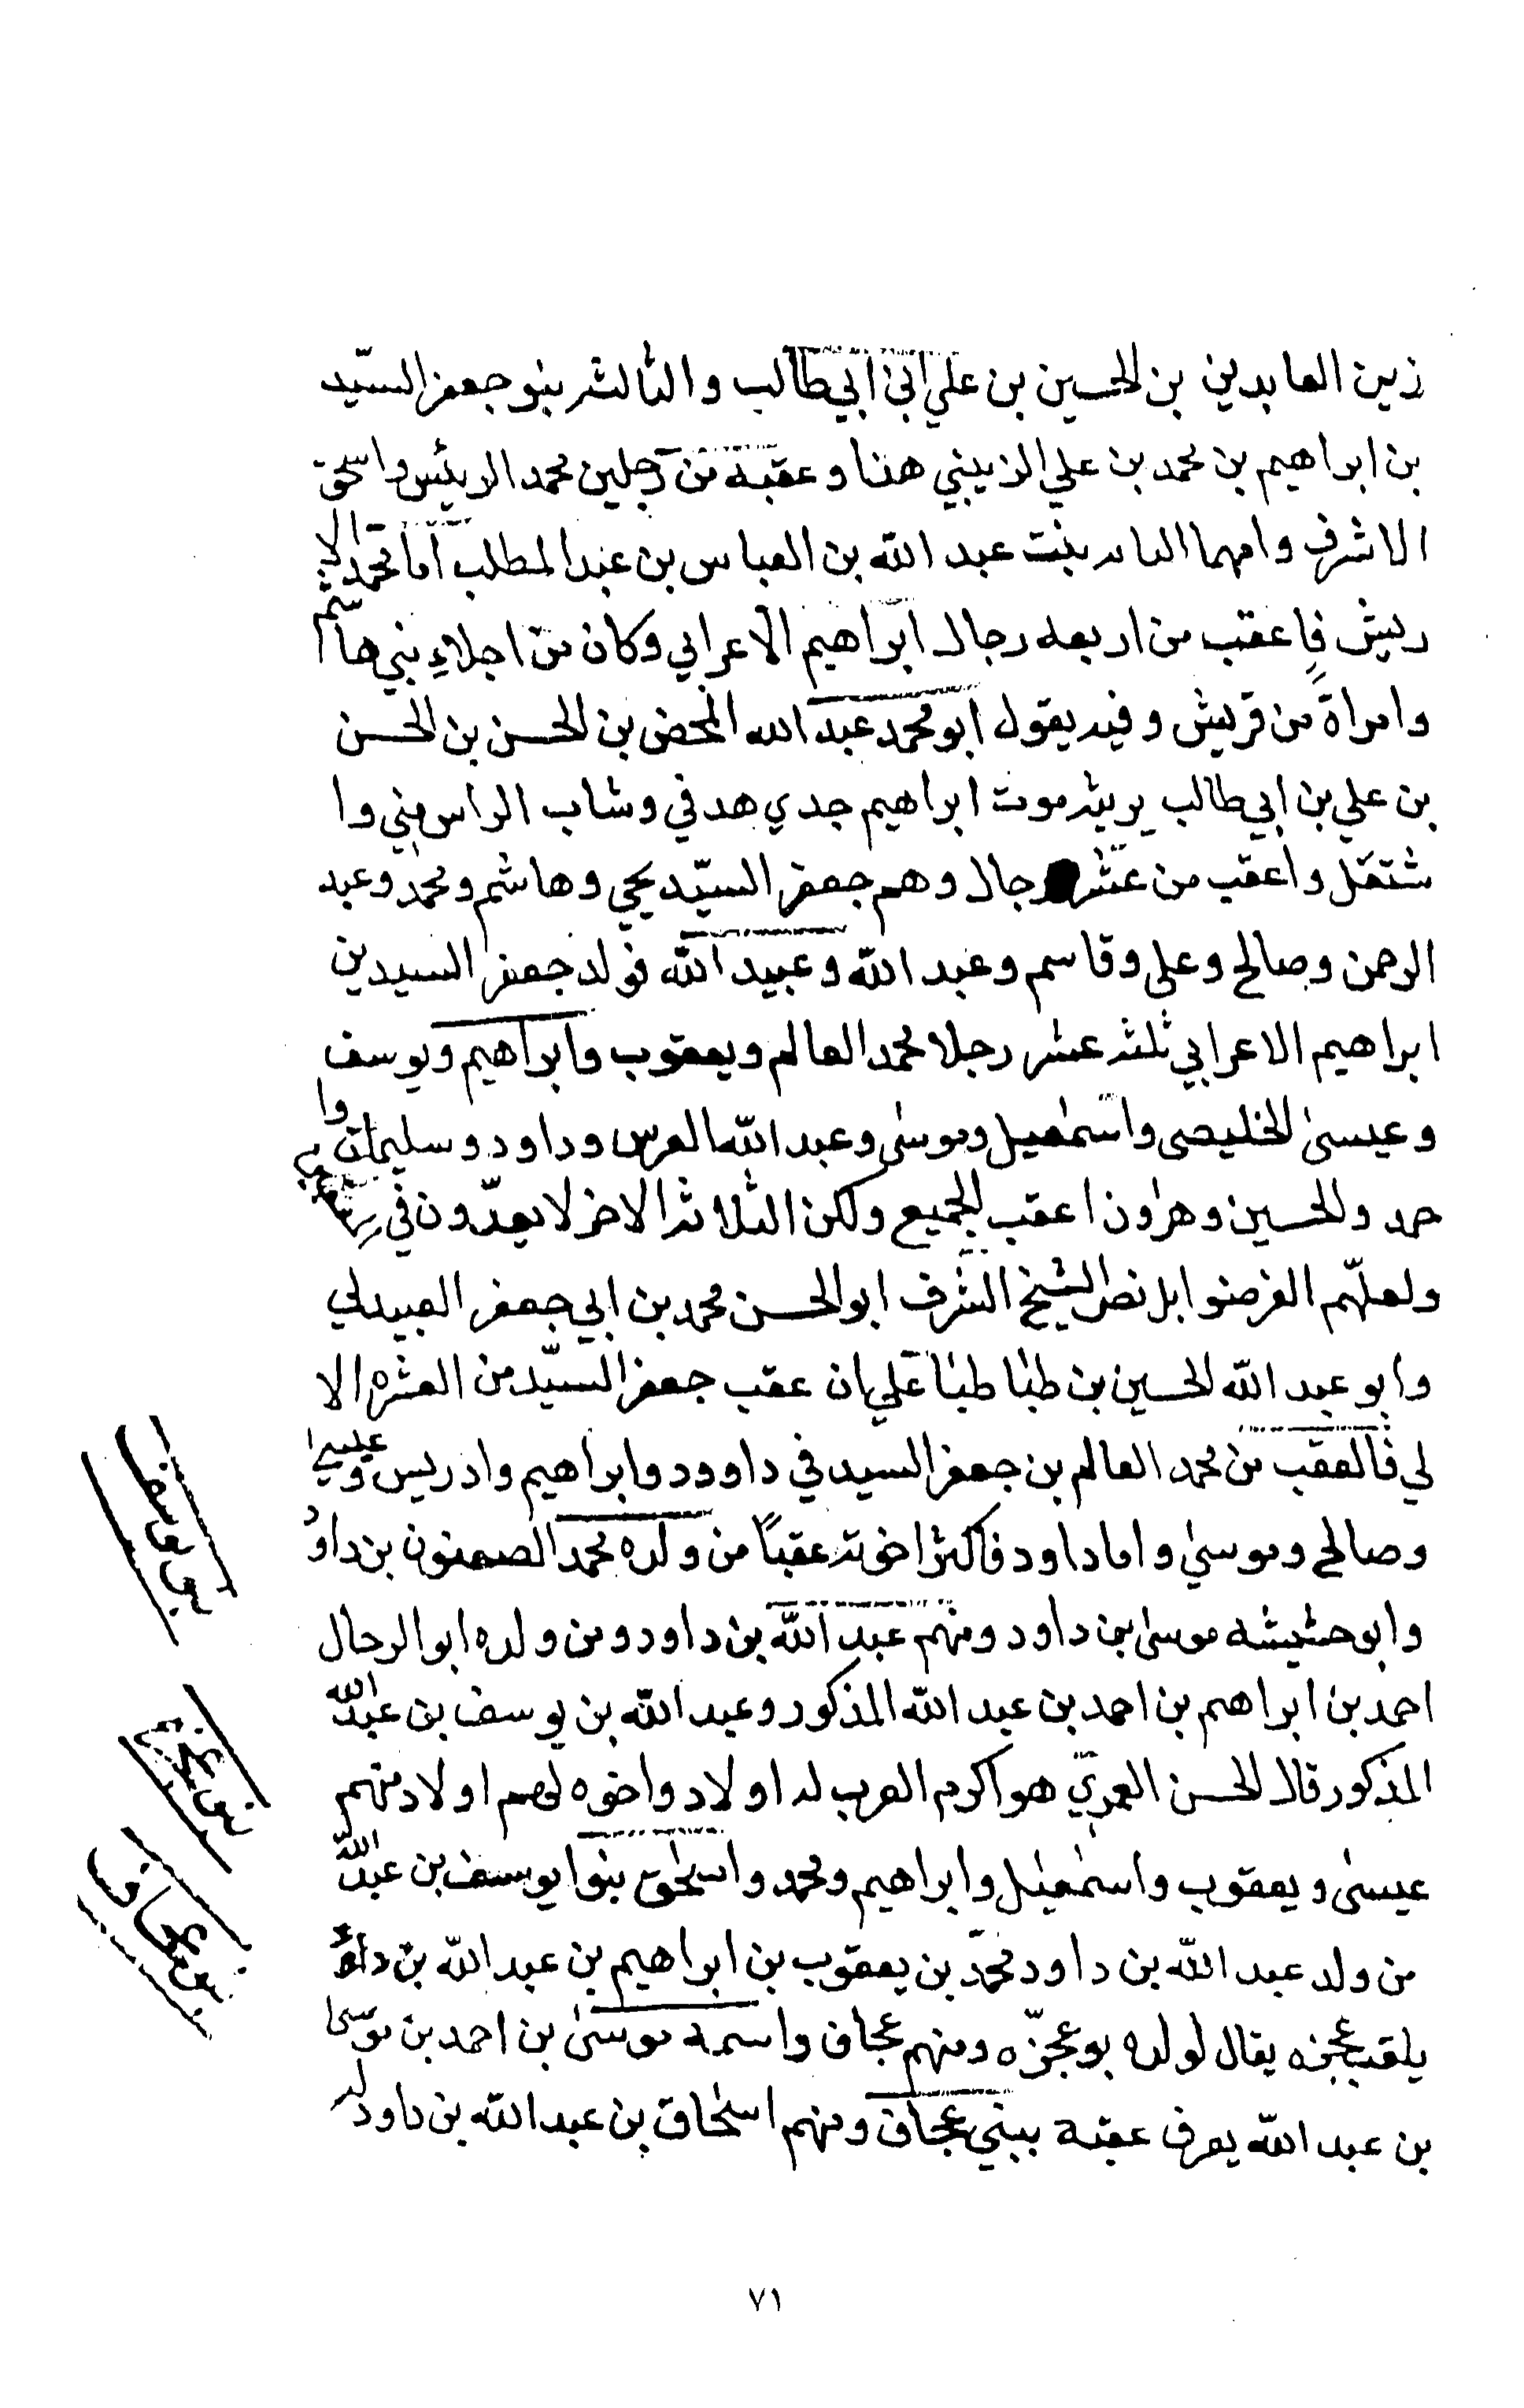 زين العابدين بن الحسين بن علي ابن ابي طالب والثالثه بنو جعفر السيّد
بن ابراهيم بن محمد بن علي الزينبي هذا وعقبه من رجلين محمد الرئيس واسحق
الاشرف وامهما بنت عبد الله بن العباس بن عبد المطلب اما محمد الا
ريئس فاعقب من اربعه رجال ابراهيم الاعرابي وكان من اجلاء بني هاشم
وامراة من قريش وفيه يقول ابو محمد عبد الله المحض بن الحسن بن الحسن
بن علي بن ابي طالب يرثيه موت ابراهيم جدي هدني وشاب الراس مني وا
شتعل واعقب من عشر رجال وهم جعفر السيّد يحي وهاشم ومحمد وعبد
الرحمن وصالح وعلى وقاسم وعبد الله وعبيد الله فولد جعفر السيد بن
ابراهيم الاعرابي ثلثه عشر رجلا محمد العالم ويعقوب وابراهيم ويوسف
وعيسى الخليصى واسمعيل وموسى وعبد الله العرس وداود وسليمان وا
حمد والحسين وهرون اعقب الجميع ولكن الثلاثه الاخر لا يعدّون في
ولعلّهم انقرضوا بل نص الشيخ الشرف ابو الحسن محمد بن ابي جعفر العبيدلي
وابو عبد الله الحسين بن طباطبا على ان عقب جعفر السيّد من العشره الا
لي فالعقب من محمد العالم بن جعفر السيد في داوود وابراهيم وادريس وعيسى
وصالح وموسى واما داود فاكثر اخوته عقباً من ولده محمد بن داود
وابو حشيشه موسى بن داود ومنهم عبد الله بن داود ومن ولده ابو الرجال
احمد بن ابراهم بن احمد بن عبد الله المذكور وعبد الله بن يوسف بن عبد الله
المذكور قال الحسن العمري هو اكرم العرب له اولاد واخوه لهم اولاد منهم
عيسى ويعقوب واسمعيل وابراهيم ومحمد واسحق بنوا يوسف بن عبد الله
من ولد عبد الله بن داود محمد بن يعقوب بن ابراهيم بن عبد الله بن داود
يلقب عجزه يقال لولده بو عجزّه ومنهم عجاف واسمه موسى بن احمد بن موسى
بن عبد الله يعرف عقبه ببني عجاف ومنهم اسحاق بن عبد الله بن داود له
بنى يوسف
بنى عجزه
بنى عجاف
٧١